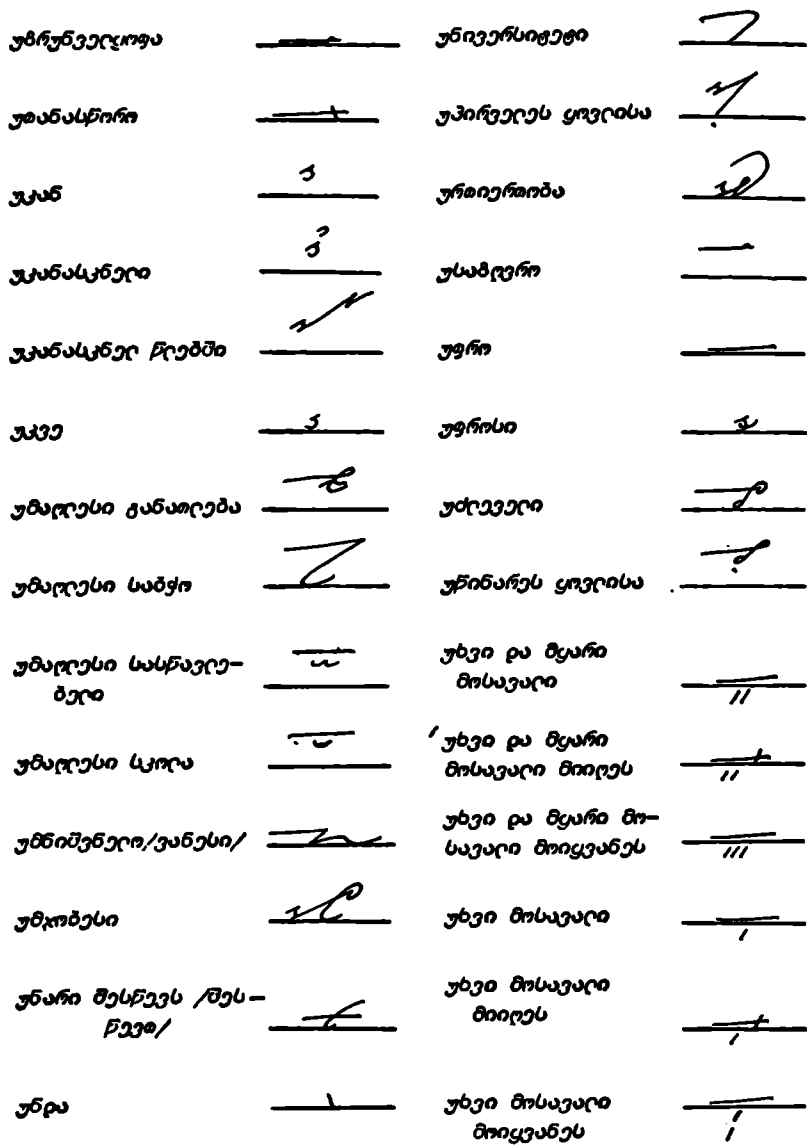 უზრუნველყოფა
უთანასწორო
უკან
უკანასკნელი
უკანასკნელ წლებში
უკვე
უმაღლესი განათლება
უმაღლესი საბჭო
უმაღლესი სასწავლე-
ბელი
უმაღლესი სკოლა
უმნიშვნელო/ვანესი/
უმჯობესი
უნარი შესწევს /შეს-
წევთ/
უნდა
უნივერსიტეტი
უპირველეს ყოვლისა
ურთიერთობა
უსაზღვრო
უფრო
უფროსი
უძლეველი
უწინარეს ყოვლისა
უხვი და მყარი
მოსავალი
უხვი და მყარი
მოსავალი მიიღეს
უხვი და მყარი მო-
სავალი მოიყვანეს
უხვი მოსავალი
უხვი მოსავალი
მიიღეს
უხვი მოსავალი
მოიყვანეს